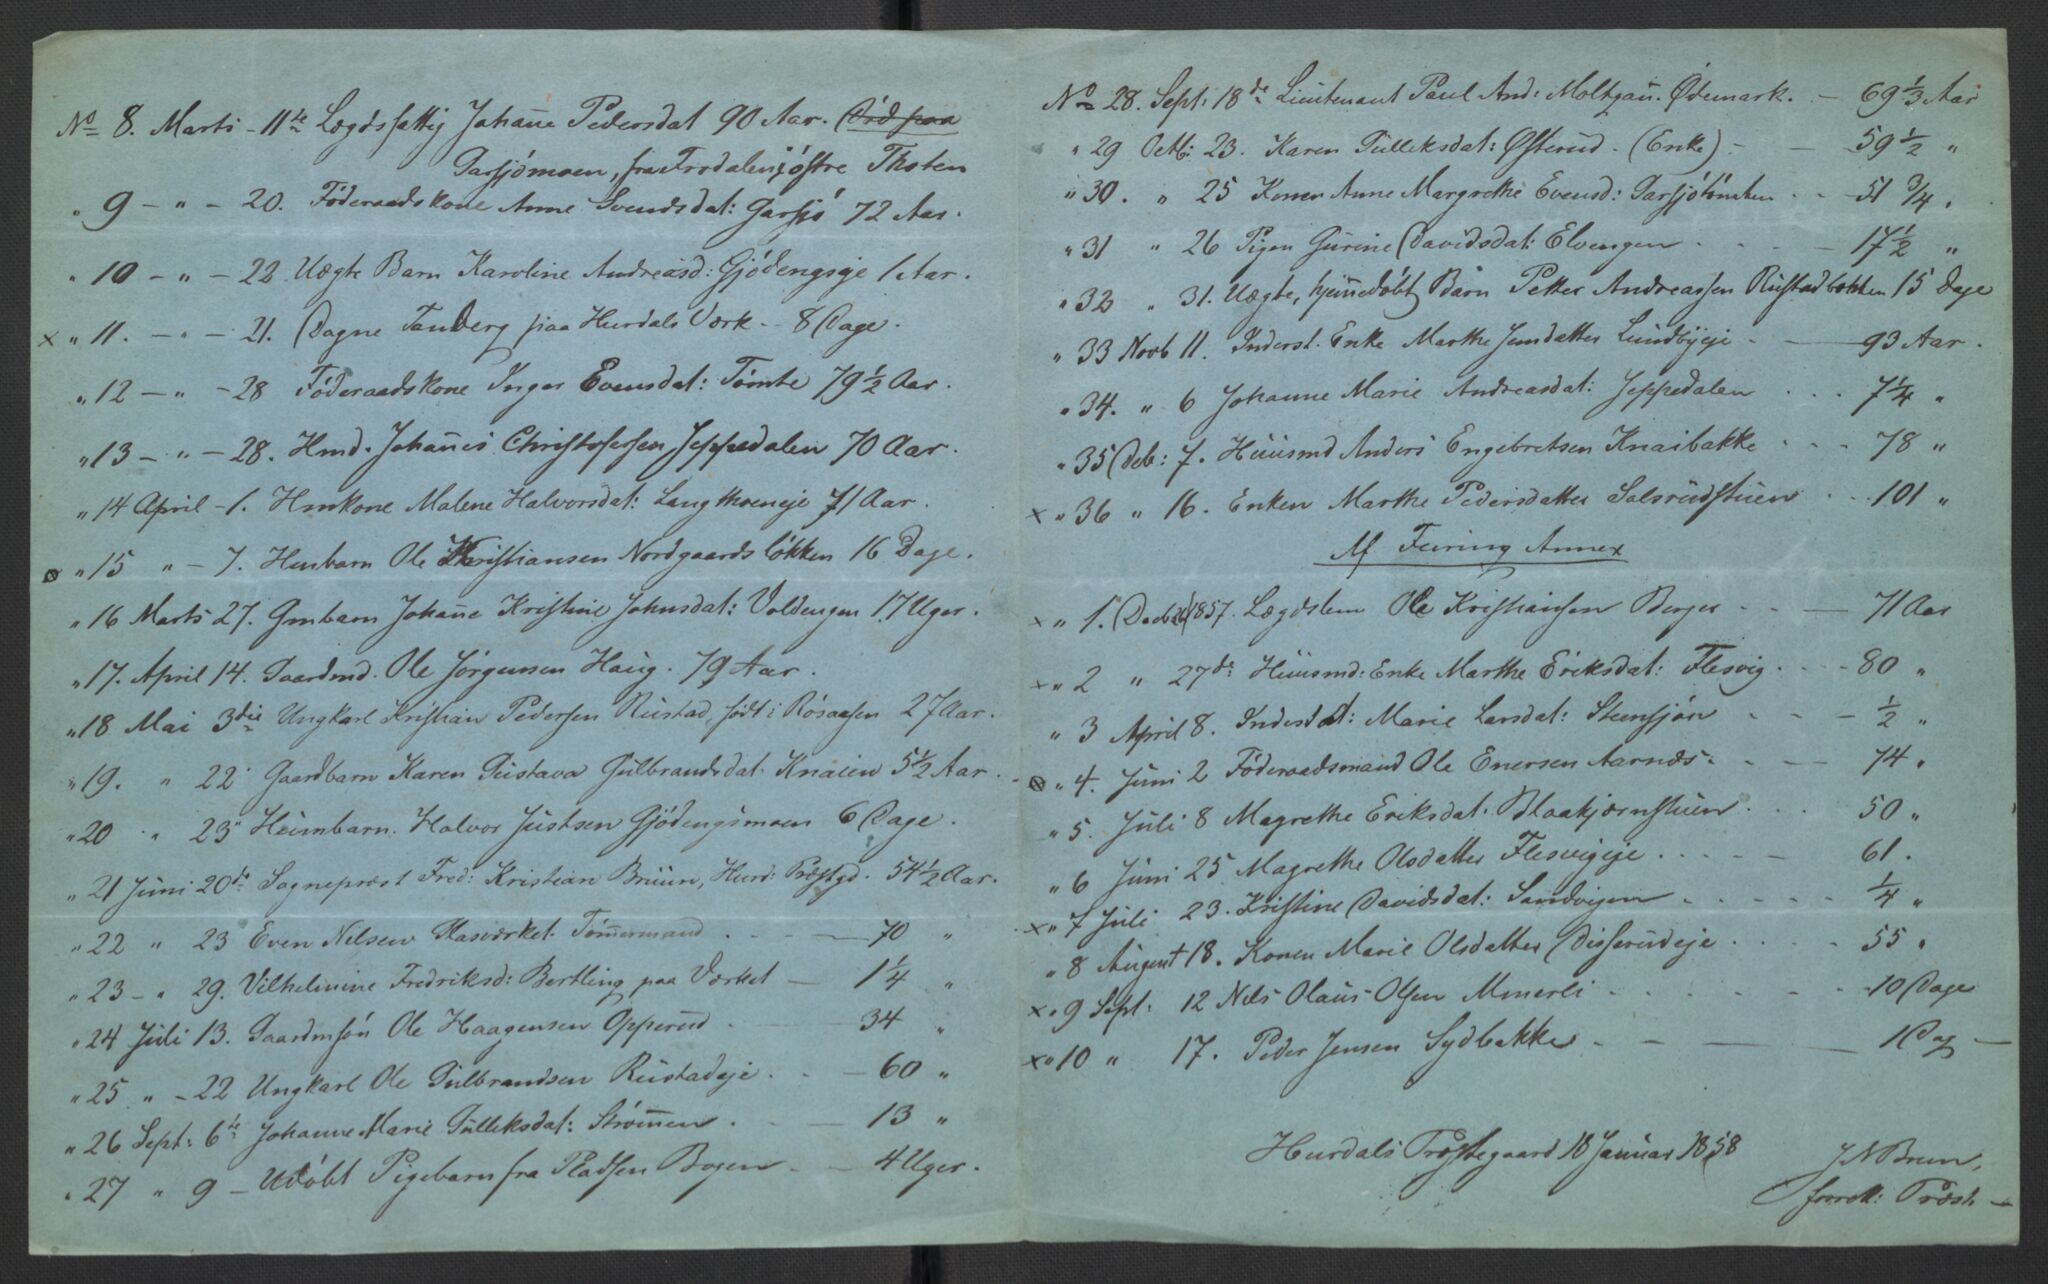 No 8. Marts - 11te Lægdsfattig Johañe Pedersdat 90 Aar. (Død paa
Garsjømoen, fra Trodalen, østre Thoten
" 9 - " - 20. Føderaadskone Anne Svendsdat: Garsjø 72 Aar.
" 10 - " - 22. Uægte Barn Karoline Andreasd: Gjødengseje 1 Aar.
x " 11. - " - 21. Dagne Tanberg paa Hurdals Værk - 8 Dage.
" 12 - " - 28 Føderaadskone Inger Evensdat: Tømte 79 1/2 Aar.
" 13 - " - 28. Hmd. Johañes Christofersen Jeppedalen 70 Aar.
" 14 April - 1. Hmkone Malene Halvorsdat: Langthoneje 71 Aar.
ø " 15 " - 7. Husbarn Ole Kristiansen Nordgaardsløkken 16 Dage.
" 16 Marts 27. Gmbarn Johañe Kristine Johnsdat: Voldengen 17 Uger.
" 17. April 14. Gaardmd. Ole Jørgensen Haug. 79 Aar.
" 18 Mai 3die Ungkarl Kristian Pedersen Rustad, født i Røsaasen 27 Aar.
" 19. " 22 Gaardbarn Karen Gustava Gulbrandsdat. Knaien 5 1/2 Aar.
" 20 " 23 Huusbarn. Halvor Justsen Gjødengsmoen 6 Dage.
" 21 Juni 20de Sognepræst Fred: Kristian Bruun, Hurd: Præstgd. 54 1/2 Aar.
" 22 " 23 Even Nilsen Glasværket. Tøm̃ermand - 70 "
" 23 - " 29. Vilhelmine Fredriksd: Bertling paa Værket - 1 1/4 "
" 24 Juli 13. Gaardmsøn Ole Haagensen Opperud - 34 "
" 25 " - 22 Ungkarl Ole Gulbrandsen Rustadeje - - 60 "
" 26 Sept: 6te Johanne Marie Gulliksdat: Strøm̃en - 13 "
" 27 " 9 - Udøbt Pigebarn fra Pladsen Bogen - - 4 Uger.
No 28. Sept: 18de Lieutenant Paul And: Moltzau. Ødemark. - 69 1/3 Aar
" 29 Octb: 23. Karen Gulliksdat: Østerud - (Enke) - - 59 1/2 "
" 30. " 25 Konen Anne Margrethe Evensd: Garsjøtømten - - 51 3/4 "
" 31 " 26 Pigen Gurine Davidsdat: Elvengen - - - 17 1/2 "
" 32 " 31. Uægte, hjem̃edøbt Barn Petter Andreassen Rustadbakken 15 Dage
" 33 Novb 11. Inderst. Enke Marthe Jensdatter Lundbyeje - - 93 Aar.
" 34. " 6 Johanne Marie Andreasdat: Jeppedalen . . . 7 1/4 "
" 35 Deb: 7. Huusmd Anders Engebretsen Knaibakke - - - 78 "
x " 36 " 16. Enken Marthe Pedersdatter Salsrudstuen - - 101 "
Af Feiring Annex
x " 1. Decb 26 1857. Lægdslem Ole Kristiansen Berger - - - 71 Aar
x " 2 " 27de Huusmd: Enke Marthe Eriksdat: Flesvig - - - 80 "
" 3 April 8. Inderstd: Marie Larsdat: Steensjøn - - - 1/2 "
ø " 4. Juni 2 Føderaadsmand Ole Enersen Aarnæs - - - 74 "
" 5. Juli 8 Magrethe Eriksdat: Blaakjærnstuen . . . 50 "
" 6 Juni 25 Magrethe Olsdatter Flesvigeje . . . 61 "
x " 7 Juli 23. Kristine Davidsdat: Sandvigen - - - 1/4 "
" 8 August 18. Konen Marie Olsdatter Disserudeje . . . 55 "
x " 9 Sept: 12 Nils Olaus Olsen - - - 10 Dage
x " 10 " 17. Peder Jensen Sydbakke - - - 1 Dag -
Hurdals Præstegaard 18 Januar 1858
J N Brun,
Præst. -